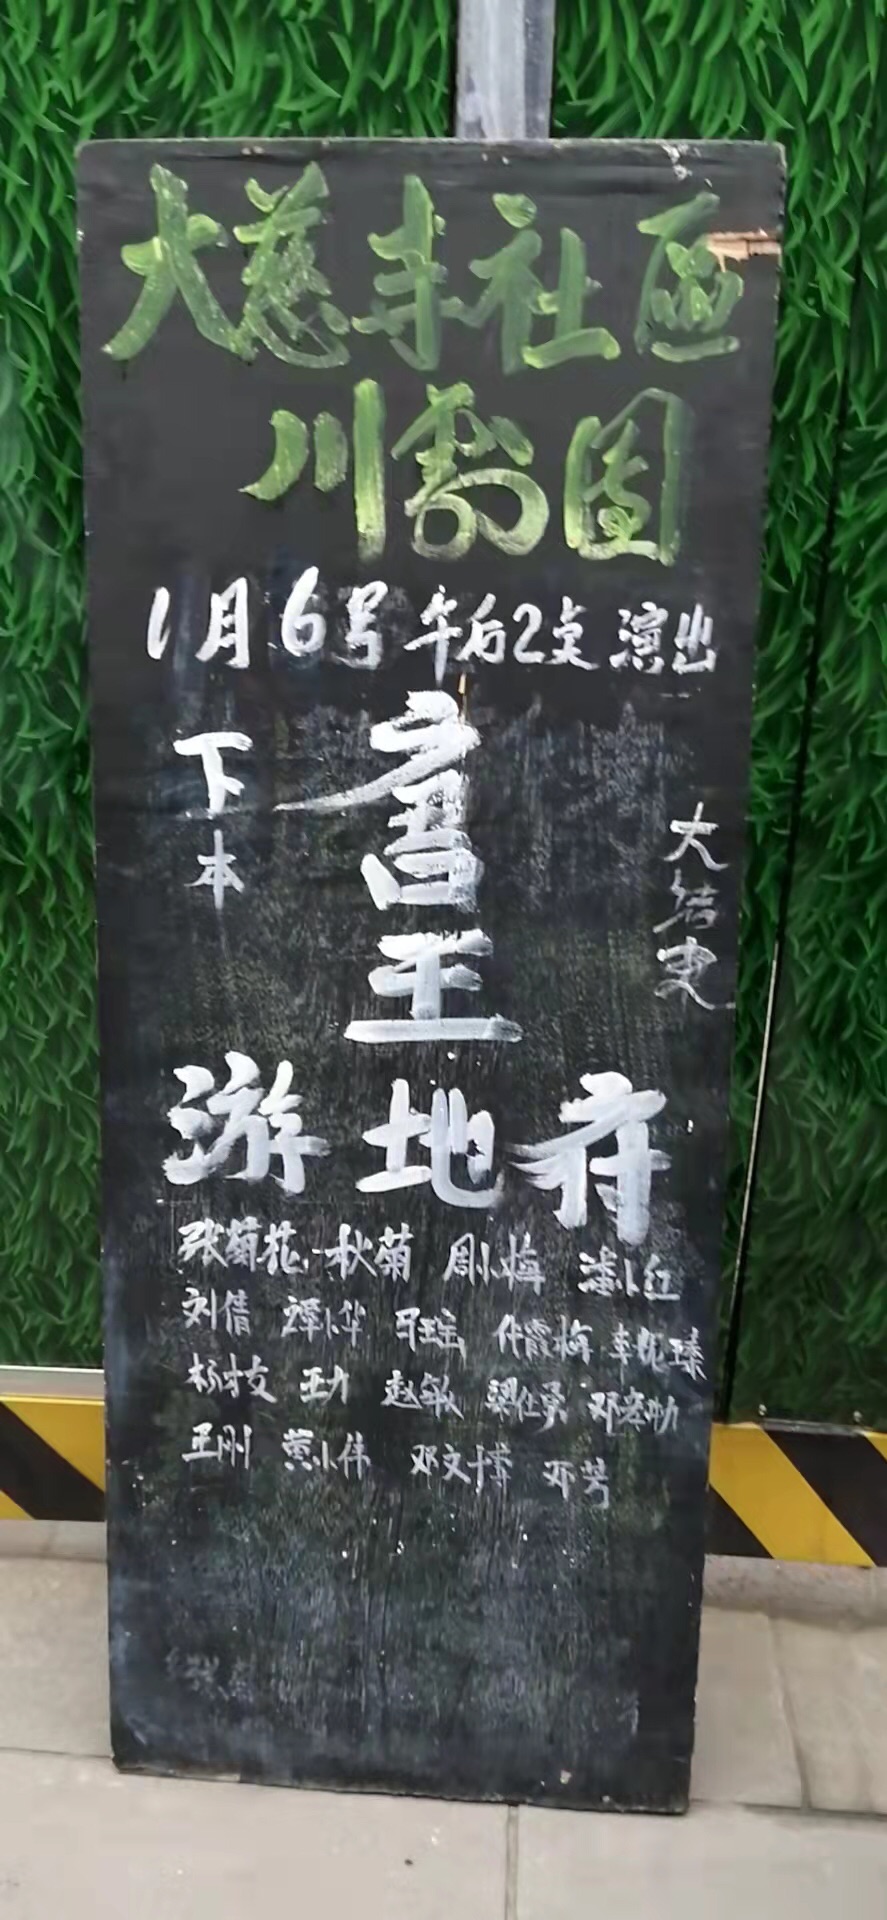 大慈寺社区
川剧团
1月6号午后2点演出
下本
唐王
大结束
游地府
张菊花 秋菊 周小梅 潘小红
刘倩 谭小华 马瑶 仵霞梅
杨才友 王力 赵敏 梁仕勇 邓宏勋
王刚 黄小伟 邓文博 邓芳